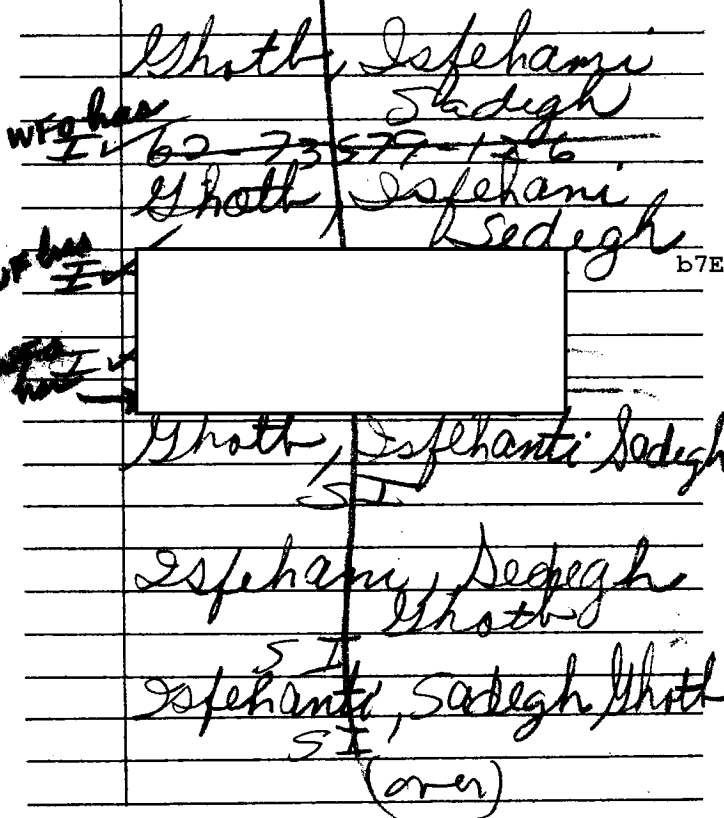 Ghotb, Isfehami
Sadegh
WFO has
I ✓ 62-73579-126
Ghotb, Isfehani
Sedegh
has
I ✓
b7E
I ✓
has
Ghotb, Isfehanti Sadegh
SI
Isfehani, Sedegh
Ghotb
SI
Isfehanti, Sadegh Ghotb
SI
(over)